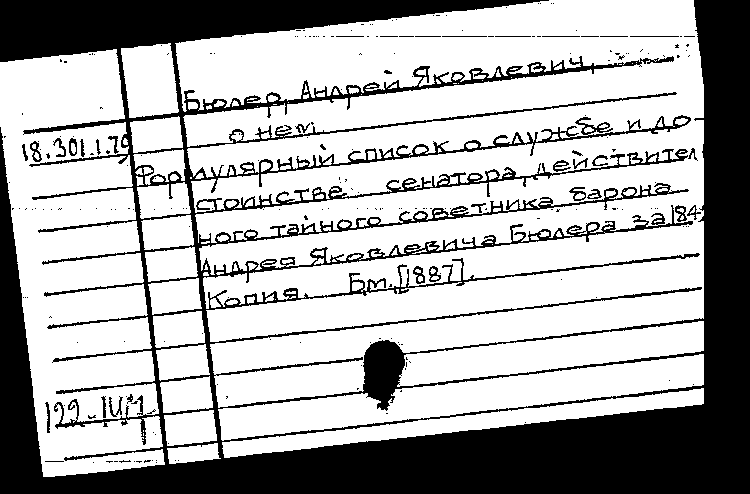 Бюлер, Андрей Яковлевич,
о нем
18.301.1.79
Формулярный список о службе и до-
стоинстве сенатора, действител
ного тайного советника барона
Андрея Яковлевича Бюлера за 184
Копия. Бм., [1887].